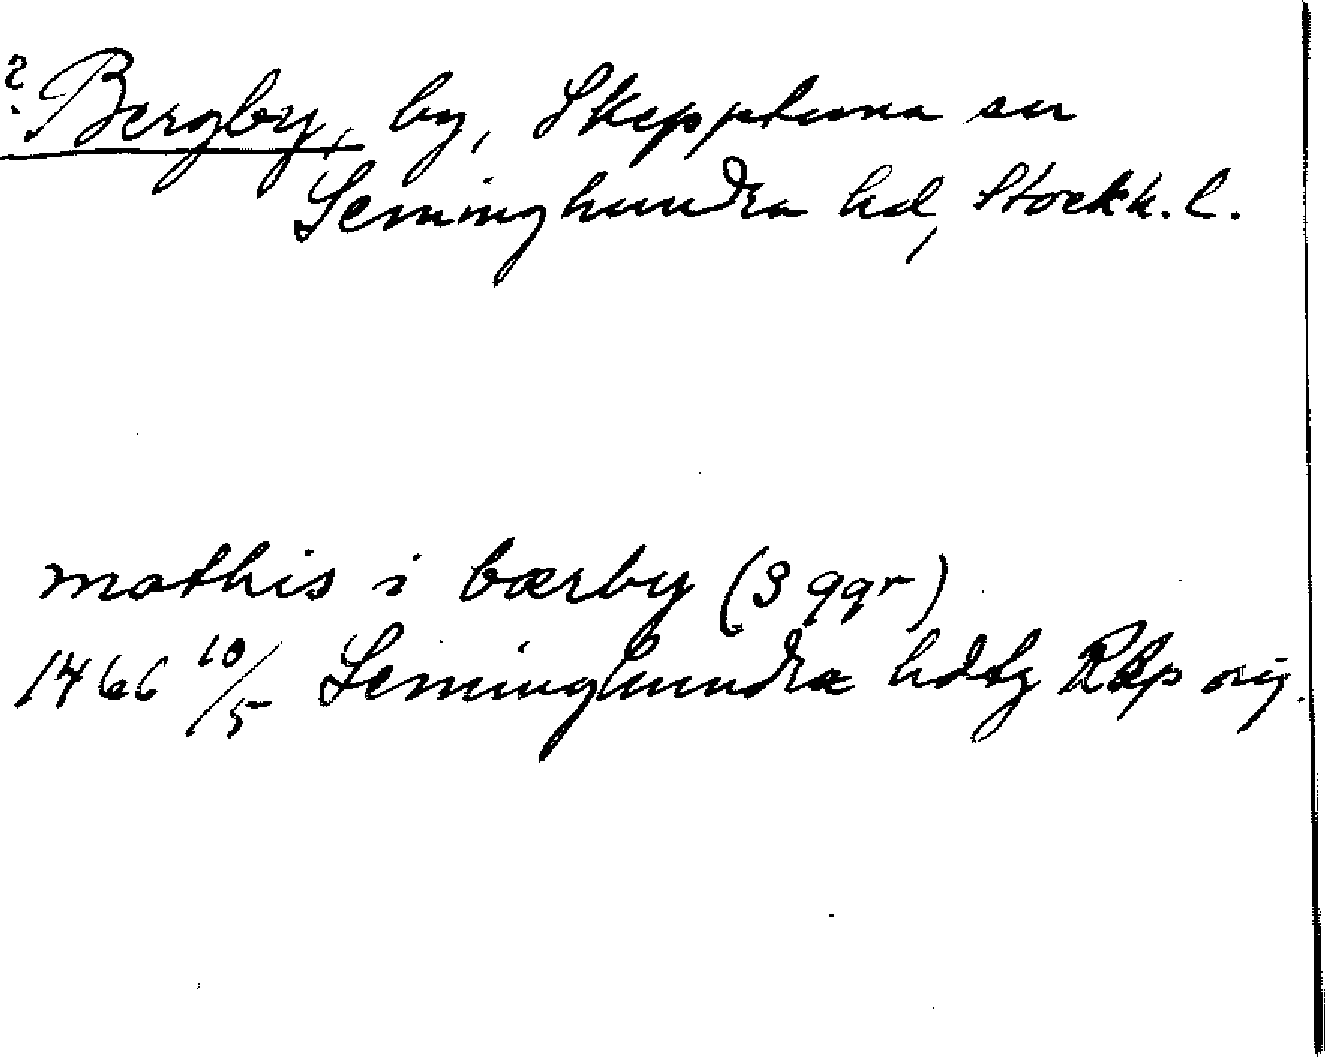 ? Bergby, by, Skepptuna sn
Seminghundra hd, Stockh. l.
mathis i bærby (3 ggr)
1466 10/5 Seminghundra hdtg RAp orig.